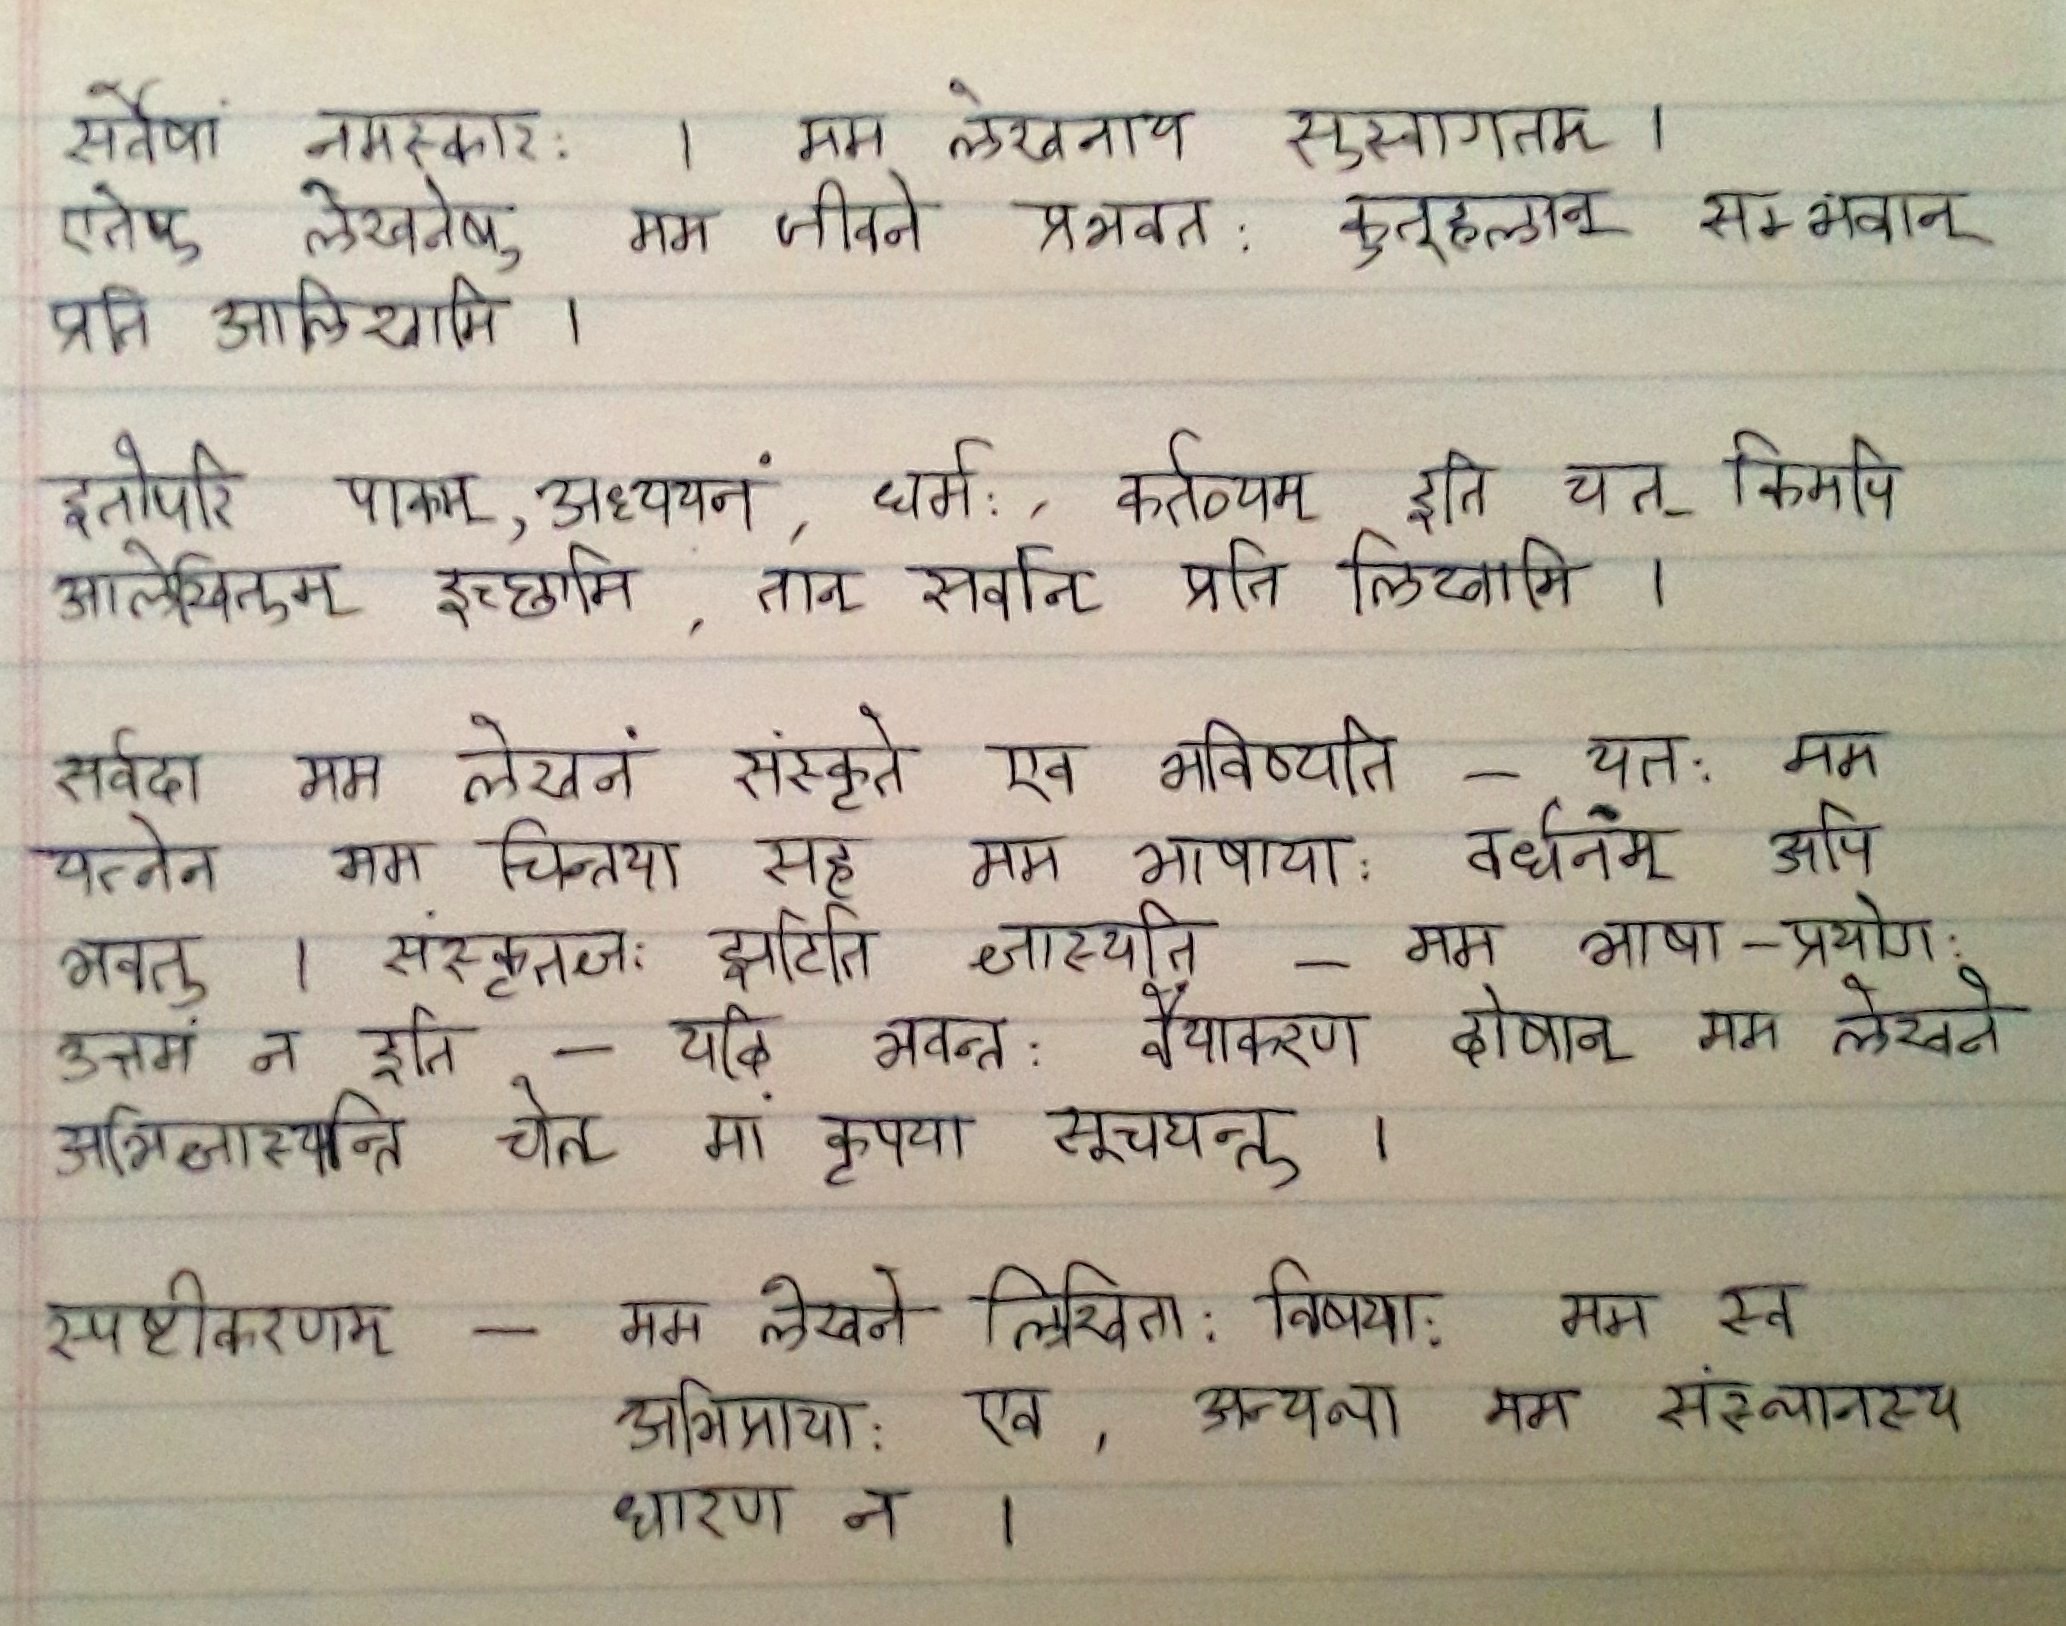 सर्वेषां नमस्कारः । मम लेखनाय सुस्वागतम् ।
एतेषु लेखनेषु मम जीवने प्रभवतः कुतूहलान् सम्भवान्
प्रति आलिखामि ।
इतोपरि पाकम्, अध्ययनं, धर्मः, कर्तव्यम् इति यत् किमपि
आलेखितुम् इच्छामि, तान् सर्वान् प्रति लिखामि ।
सर्वदा मम लेखनं संस्कृते एव भविष्यति – यतः मम
यत्नेन मम चिन्तया सह मम भाषायाः वर्धनम् अपि
भवतु । संस्कृतज्ञः झटिति ज्ञास्यति – मम भाषा-प्रयोगः
उत्तमं न इति – यदि भवन्तः वैयाकरण दोषान् मम लेखने
अभिज्ञास्यन्ति चेत् मां कृपया सूचयन्तु ।
स्पष्टीकरणम् – मम लेखने लिखिताः विषयाः मम स्व
अभिप्रायाः एव, अन्यथा मम संस्थानस्य
धारण न ।